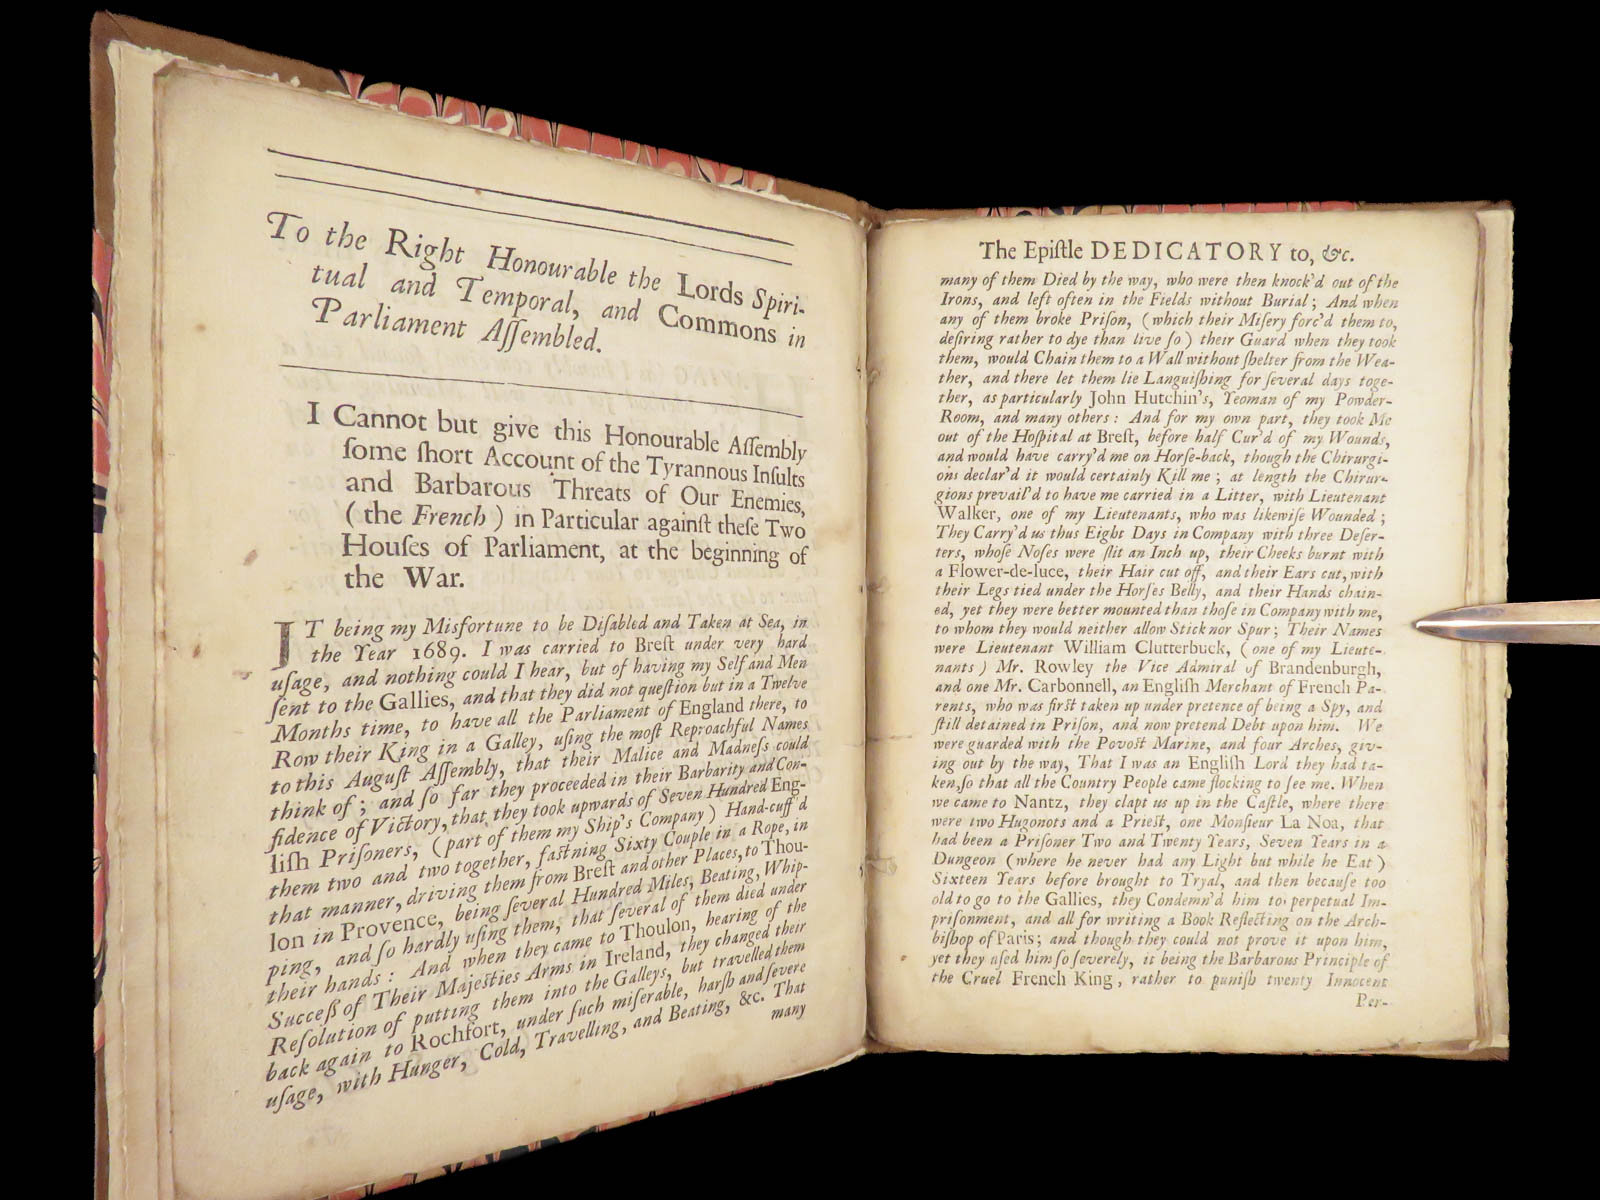 To the Right Honourable the Lords Spiri-
tual and Temporal, and Commons in
Parliament Aſſembled.
I Cannot but give this Honourable Aſſembly
ſome ſhort Account of the Tyrannous Inſults
and Barbarous Threats of Our Enemies,
(the French) in Particular againſt theſe Two
Houſes of Parliament, at the beginning of
the War.
IT being my Misfortune to be Diſabled and Taken at Sea, in
the Year 1689. I was carried to Breſt under very hard
uſage, and nothing could I hear, but of having my Self and Men
ſent to the Gallies, and that they did not queſtion but in a Twelve
Months time, to have all the Parliament of England there, to
Row their King in a Galley, uſing the moſt Reproachful Names
to this Auguſt Aſſembly, that their Malice and Madneſs could
think of; and ſo far they proceeded in their Barbarity and Con-
fidence of Victory, that they took upwards of Seven Hundred Eng-
liſh Priſoners, (part of them my Ship's Company) Hand-cuff'd
them two and two together, faſtning Sixty Couple in a Rope, in
that manner, driving them from Breſt and other Places, to Thou-
lon in Provence, being ſeveral Hundred Miles, Beating, Whip-
ping, and ſo hardly uſing them, that ſeveral of them died under
their hands: And when they came to Thoulon, hearing of the
Succeſs of Their Majeſties Arms in Ireland, they changed their
Reſolution of putting them into the Galleys, but travelled them
back again to Rochfort, under ſuch miſerable, harſh and ſevere
uſage, with Hunger, Cold, Travelling, and Beating, &c. That
many
The Epiſtle DEDICATORY to, &c.
many of them Died by the way, who were then knock'd out of the
Irons, and left often in the Fields without Burial; And when
any of them broke Priſon, (which their Miſery forc'd them to,
deſiring rather to dye than live ſo) their Guard when they took
them, would Chain them to a Wall without ſhelter from the Wea-
ther, and there let them lie Languiſhing for ſeveral days toge-
ther, as particularly John Hutchin's, Yeoman of my Powder-
Room, and many others: And for my own part, they took Me
out of the Hoſpital at Breſt, before half Cur'd of my Wounds,
and would have carry'd me on Horſe-back, though the Chirurgi-
ons declar'd it would certainly Kill me; at length the Chirur-
gions prevail'd to have me carried in a Litter, with Lieutenant
Walker, one of my Lieutenants, who was likewiſe Wounded;
They Carry'd us thus Eight Days in Company with three Deſer-
ters, whoſe Noſes were ſlit an Inch up, their Cheeks burnt with
a Flower-de-luce, their Hair cut off, and their Ears cut, with
their Legs tied under the Horſes Belly, and their Hands chain-
ed, yet they were better mounted than thoſe in Company with me,
to whom they would neither allow Stick nor Spur; Their Names
were Lieutenant William Clutterbuck, (one of my Lieute-
nants) Mr. Rowley the Vice Admiral of Brandenburgh,
and one Mr. Carbonnell, an Engliſh Merchant of French Pa-
rents, who was firſt taken up under pretence of being a Spy, and
ſtill detained in Priſon, and now pretend Debt upon him. We
were guarded with the Povoſt Marine, and four Arches, giv-
ing out by the way, That I was an Engliſh Lord they had ta-
ken, ſo that all the Country People came flocking to ſee me. When
we came to Nantz, they clapt us up in the Caſtle, where there
were two Hugonots and a Prieſt, one Monſieur La Noa, that
had been a Priſoner Two and Twenty Years, Seven Years in a
Dungeon (where he never had any Light but while he Eat)
Sixteen Years before brought to Tryal, and then becauſe too
old to go to the Gallies, they Condemn'd him to perpetual Im-
priſonment, and all for writing a Book Reflecting on the Arch-
biſhop of Paris; and though they could not prove it upon him,
yet they uſed him ſo ſeverely, it being the Barbarous Principle of
the Cruel French King, rather to puniſh twenty Innocent
Per-